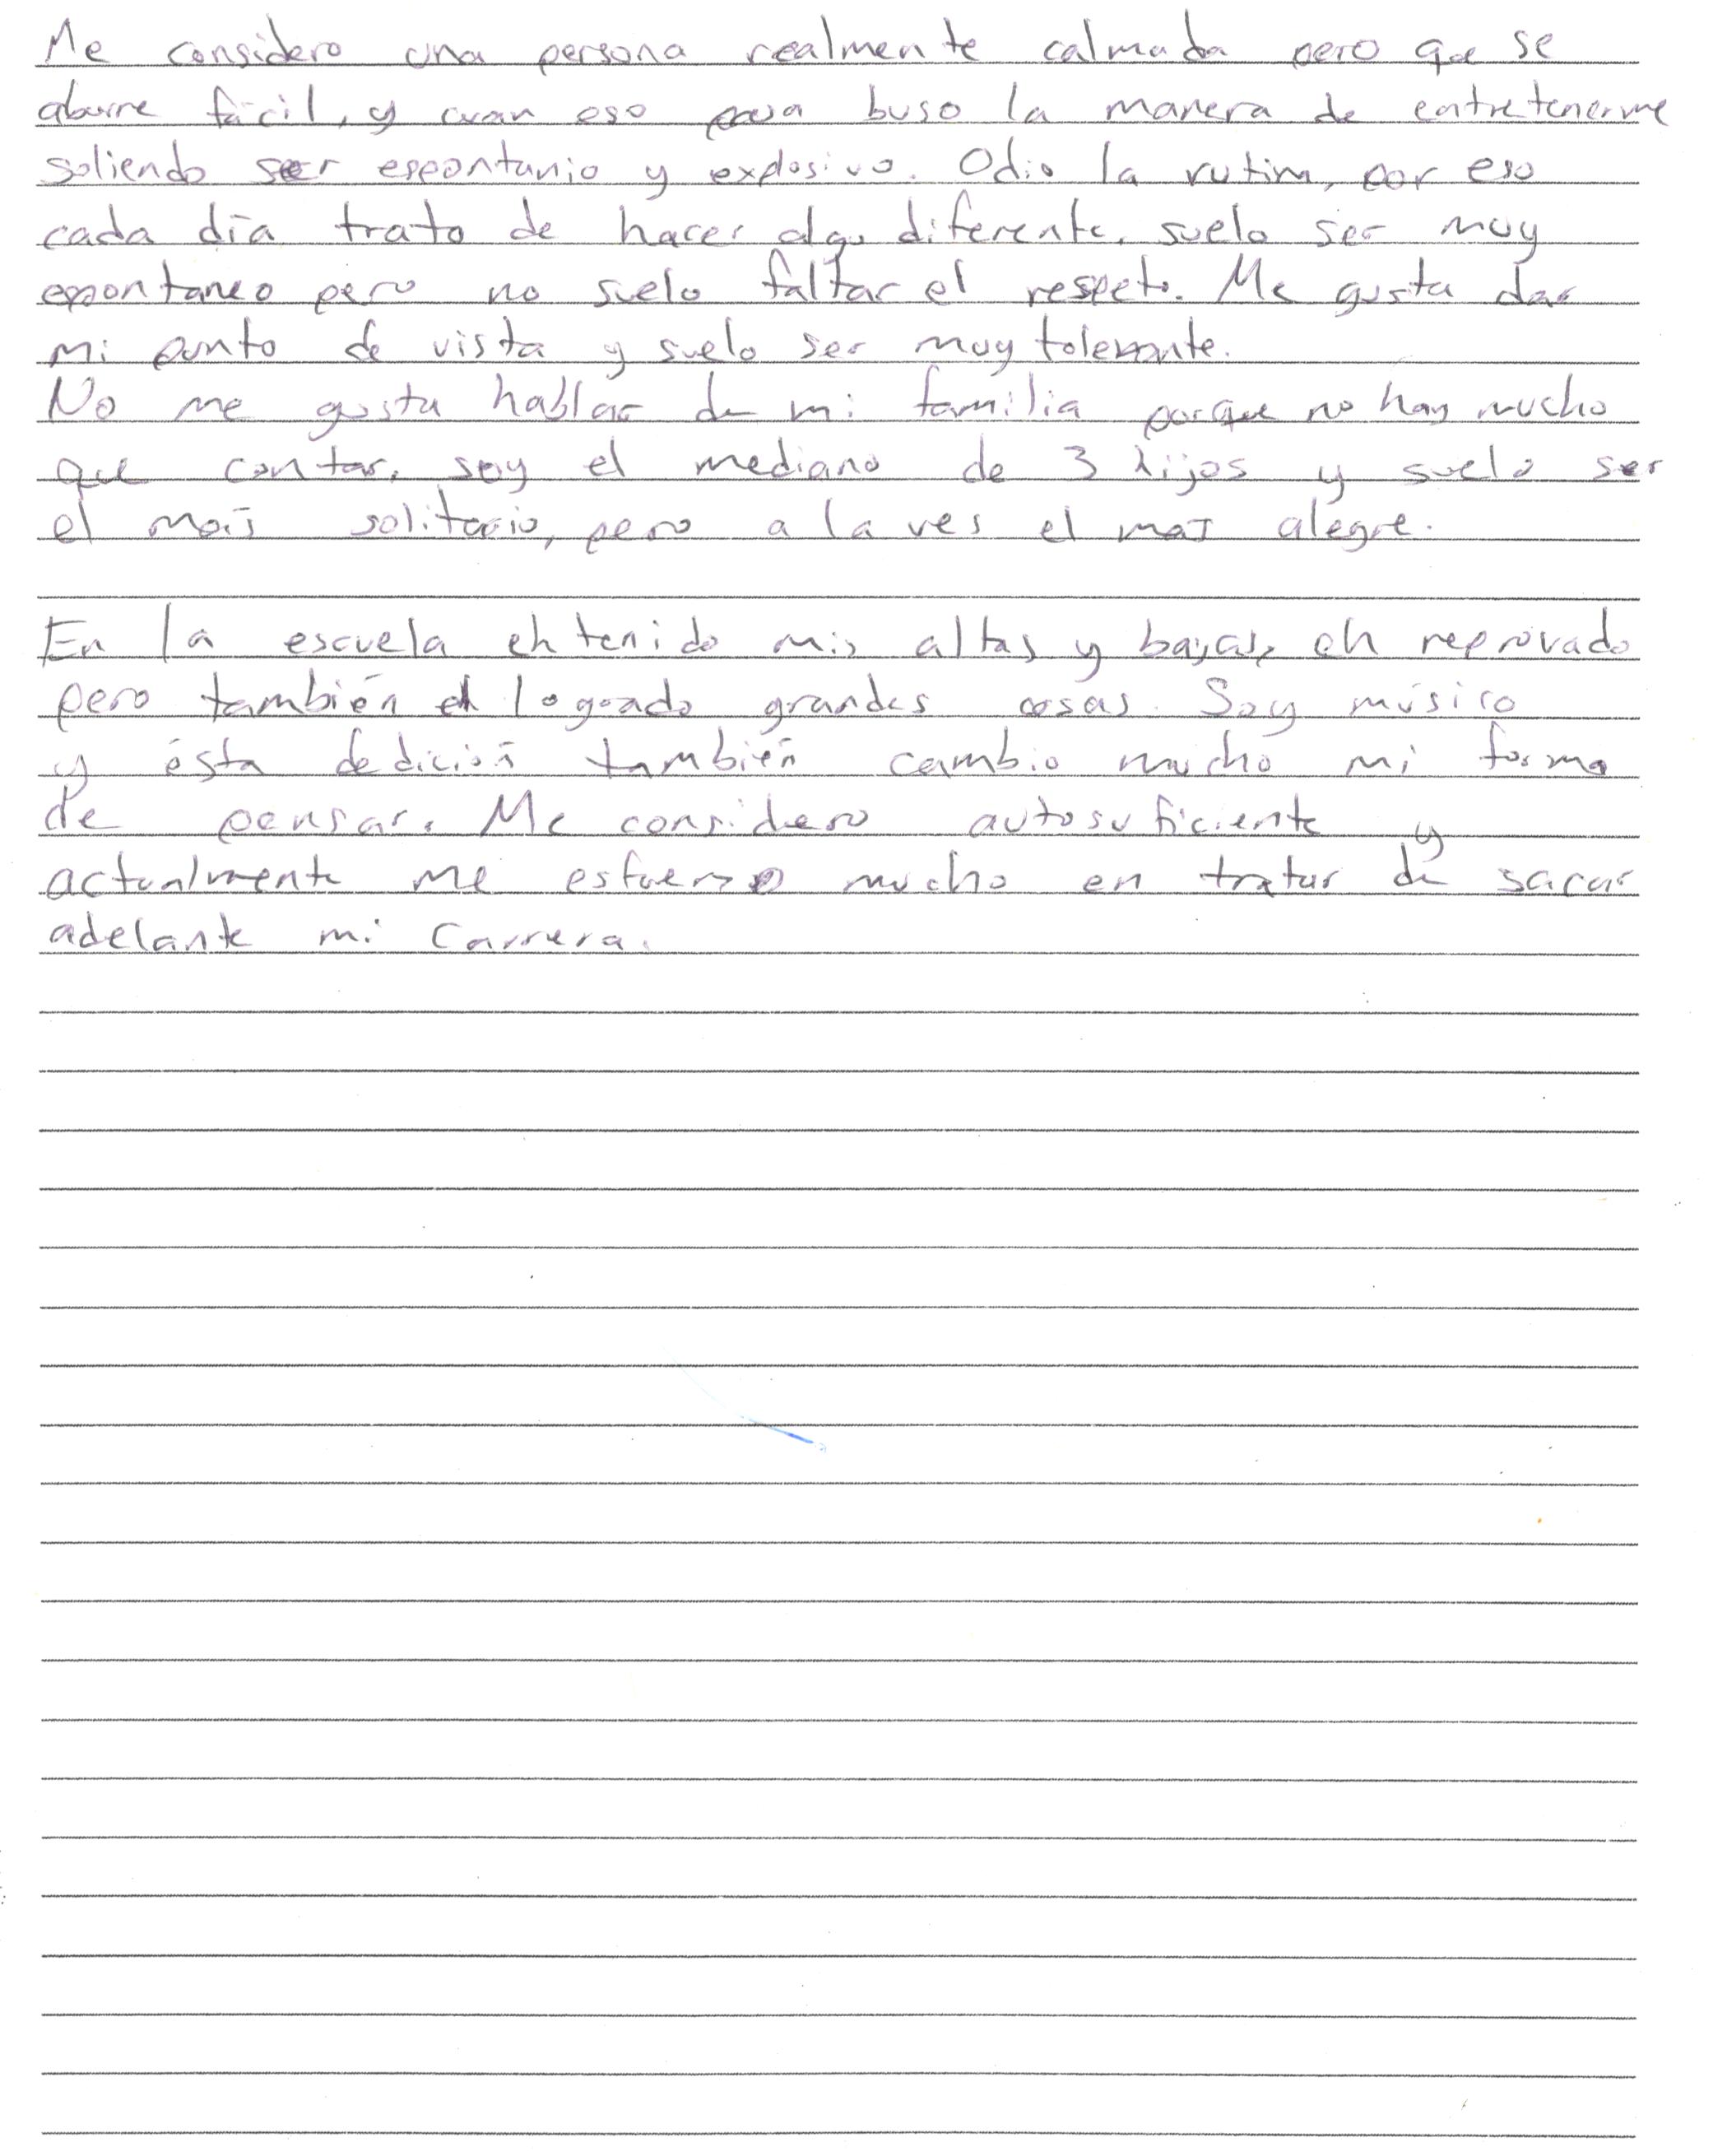 Me considero una persona realmente calmada pero que se
aburre fácil, y cuan eso pasa buso la manera de entretenerme
soliendo ser espontanio y explosivo. Odio la rutina, por eso
cada día trato de hacer algo diferente, suelo ser muy
espontaneo pero no suelo faltar el respeto. Me gusta dar
mi punto de vista y suelo ser muy tolerante.
No me gusta hablar de mi familia porque no hay mucho
que contar, soy el mediano de 3 hijos y suelo ser
el más solitario, pero a la ves el mas alegre.
En la escuela eh tenido mis altas y bajas, eh reprovado
pero también eh logrado grandes cosas. Soy músico
y ésta dedición también cambio mucho mi forma
de pensar. Me considero autosuficiente y
actualmente me esfuerzo mucho en tratar de sacar
adelante mi carrera.